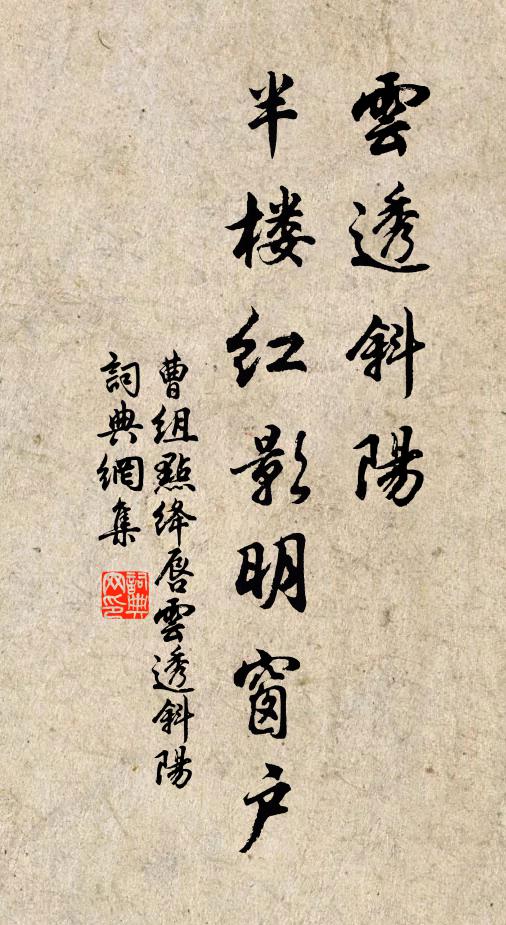 雲透斜陽
半楼紅影明窗户
曹組點絳唇雲透斜陽
詞典網集
詞典
网印